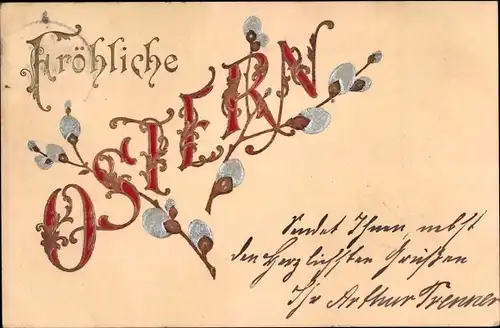 Fröhliche
OSTERN
Sendet Ihnen, nebst
den Herzlichsten Grüßen
Ihr Arthur Trenner